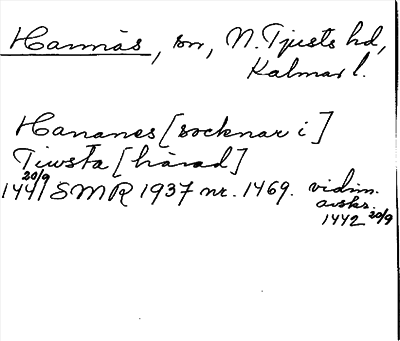 Hannäs, sn, N. Tjusts hd,
Kalmar l.
Hananes [socknar i]
Tiwsta [härad]
1441 20/9 SMR 1937 nr. 1469. vidim.
avskr.
1442 20/9